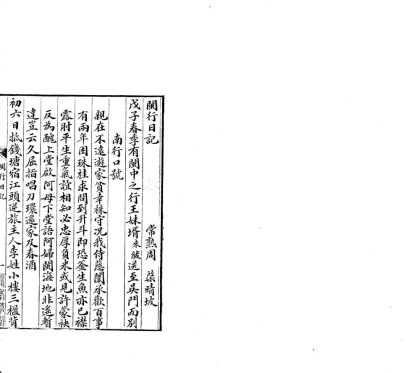 閩行日記
常熟周 榘晴坡
戊子春季有閩中之行王妹壻來皷送至吳門而別
南行口號
親在不遠遊家貧幸株守况我侍慈闈承歡百事
有兩年困珠桂求問到升斗即恐釜生魚亦已襟
露肘平生重氣誼相知必忠厚負米或見許蒙袂
反為醜上堂啟阿母下堂語阿婦閩海地非遙暫
違豈云久屈指唱刀環還家及春酒
初六日抵錢塘宿江頭逆旅主人李姓小樓三楹背
閩行日記
一